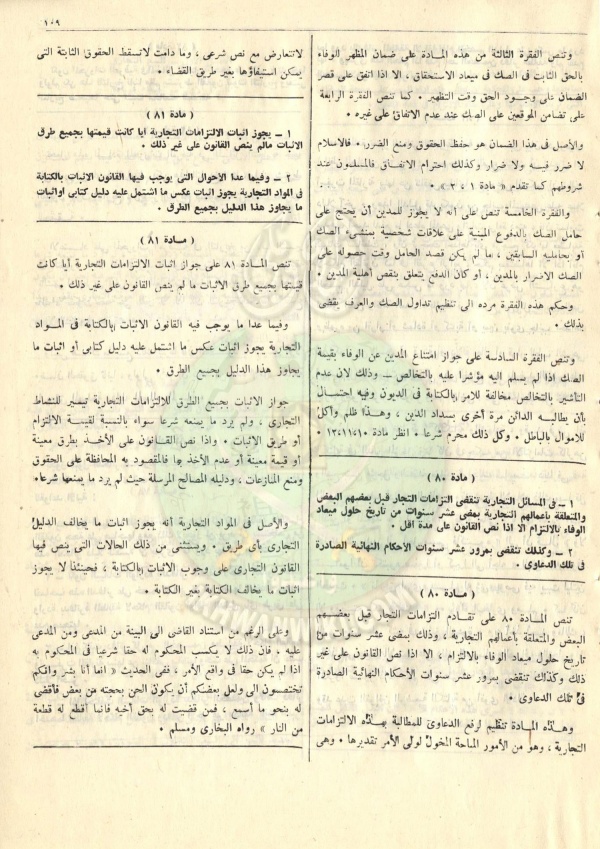 ١٠٩
وتنص الفقرة الثالثة من هذه المادة على ضمان المظهر للوفاء
بالحق الثابت فى الصك فى ميعاد الاستحقاق ، الا اذا اتفق على قصر
الضمان على وجود الحق وقت التظهير ٠ كما تنص الفقرة الرابعة
على تضامن الموقعين على الصك عند عدم الاتفاق على غيره ٠
والأصل فى هذا الضمان هو حفظ الحقوق ومنع الضرر ٠ فالاسلام
لا ضرر فيه ولا ضرار وكذلك احترام الاتفاق فالمسلمون عند
شروطهم كما تقدم « مادة ١ ، ٣ » ٠
والفقرة الخامسة تنص على أنه لا يجوز للمدين أن يحتج على
حامل الصك بالدفوع المبنية على علاقات شخصية بمنشىء الصك
أو بحامليه السابقين ، ما لم يكن قصد الحامل وقت حصوله على
الصك الاضرار بالمدين ، أو كان الدفع يتعلق بنقص أهلية المدين ٠
وحكم هذه الفقرة مرده الى تنظيم تداول الصك والعرف يقضى
بذلك ٠
وتنص الفقرة السادسة على جواز امتناع المدين عن الوفاء بقيمة
الصك اذا لم يسلم اليه مؤشرا عليه بالتخالص — وذلك لان عدم
التأشير بالتخالص مخالفة للامر بالكتابة فى الديون وفيه احتمال
بأن يطالبه الدائن مرة أخرى بسداد الدين ، وهذا ظلم وأكل
للاموال بالباطل ٠ وكل ذلك محرم شرعا ٠ انظر مادة ١٣،١١،١٠ ٠
( مادة ٨٠ )
١ — فى المسائل التجارية تنقضى التزامات التجار قبل بعضهم البعض
والمتعلقة بأعمالهم التجارية بمضى عشر سنوات من تاريخ حلول ميعاد
الوفاء بالالتزام الا اذا نص القانون على مدة اقل ٠
٢ — وكذلك تنقضى بمرور عشر سنوات الأحكام النهائية الصادرة
فى تلك الدعاوى ٠
( مادة ٨٠ )
تنص المادة ٨٠ على تقادم التزامات التجار قبل بعضهم
البعض والمتعلقة بأعمالهم التجارية ، وذلك بمضى عشر سنوات من
تاريخ حلول ميعاد الوفاء بالالتزام ، الا اذا نص القانون على غير
ذلك وكذلك تنقضى بمرور عشر سنوات الأحكام النهائية الصادرة
فى تلك الدعاوى ٠
وهذه المادة تنظيم لرفع الدعاوى للمطالبة بهذه الالتزامات
التجارية ، وهو من الأمور المباحة المخول لولى الأمر تقديرها ٠ وهى
لاتتعارض مع نص شرعى ، وما دامت لاتسقط الحقوق الثابتة التى
يمكن استيفاؤها بغير طريق القضاء ٠
( مادة ٨١ )
١ — يجوز اثبات الالتزامات التجارية أيا كانت قيمتها بجميع طرق
الاثبات مالم ينص القانون على غير ذلك ٠
٢ — وفيما عدا الأحوال التى يوجب فيها القانون الاثبات بالكتابة
فى المواد التجارية يجوز اثبات عكس ما اشتمل عليه دليل كتابى أواثبات
ما يجاوز هذا الدليل بجميع الطرق ٠
( مادة ٨١ )
تنص المادة ٨١ على جواز اثبات الالتزامات التجارية أيا كانت
قيمتها بجميع طرق الاثبات ما لم ينص القانون على غير ذلك ٠
وفيما عدا ما يوجب فيه القانون الاثبات بالكتابة فى المواد
التجارية يجوز اثبات عكس ما اشتمل عليه دليل كتابى أو اثبات ما
يجاوز هذا الدليل بجميع الطرق ٠
جواز الاثبات بجميع الطرق للالتزامات التجارية تيسير للنشاط
التجارى ، ولم يرد ما يمنعه شرعا سواء بالنسبة لقيمة الالتزام
أو طريق الاثبات ٠ واذا نص القانون على الأخذ بطرق معينة
أو قيمة معينة أو عدم الأخذ بها فالمقصود به المحافظة على الحقوق
ومنع المنازعات ، ودليله المصالح المرسلة حيث لم يرد ما يمنعها شرعا٠
والأصل فى المواد التجارية أنه يجوز اثبات ما يخالف الدليل
التجارى بأى طريق ٠ ويستثنى من ذلك الحالات التى ينص فيها
القانون التجارى على وجوب الاثبات بالكتابة ، فحينئذا لا يجوز
اثبات ما يخالف الكتابة بغير الكتابة ٠
وعلى الرغم من استناد القاضى الى البينة من المدعى ومن المدعى
عليه ٠ فان ذلك لا يكسب المحكوم له حقا شرعيا فى المحكوم به
اذا لم يكن حقا فى واقع الأمر ، ففى الحديث « انما أنا بشر وانكم
تختصمون الى ولعل بعضكم أن يكون الحن بحجته من بعض فأقضى
له بنحو ما أسمع ، فمن قضيت له بحق أخيه فانما أقطع له قطعة
من النار » رواه البخارى ومسلم ٠